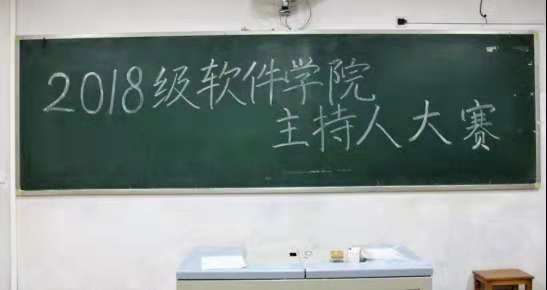 2018级软件学院
主持人大赛